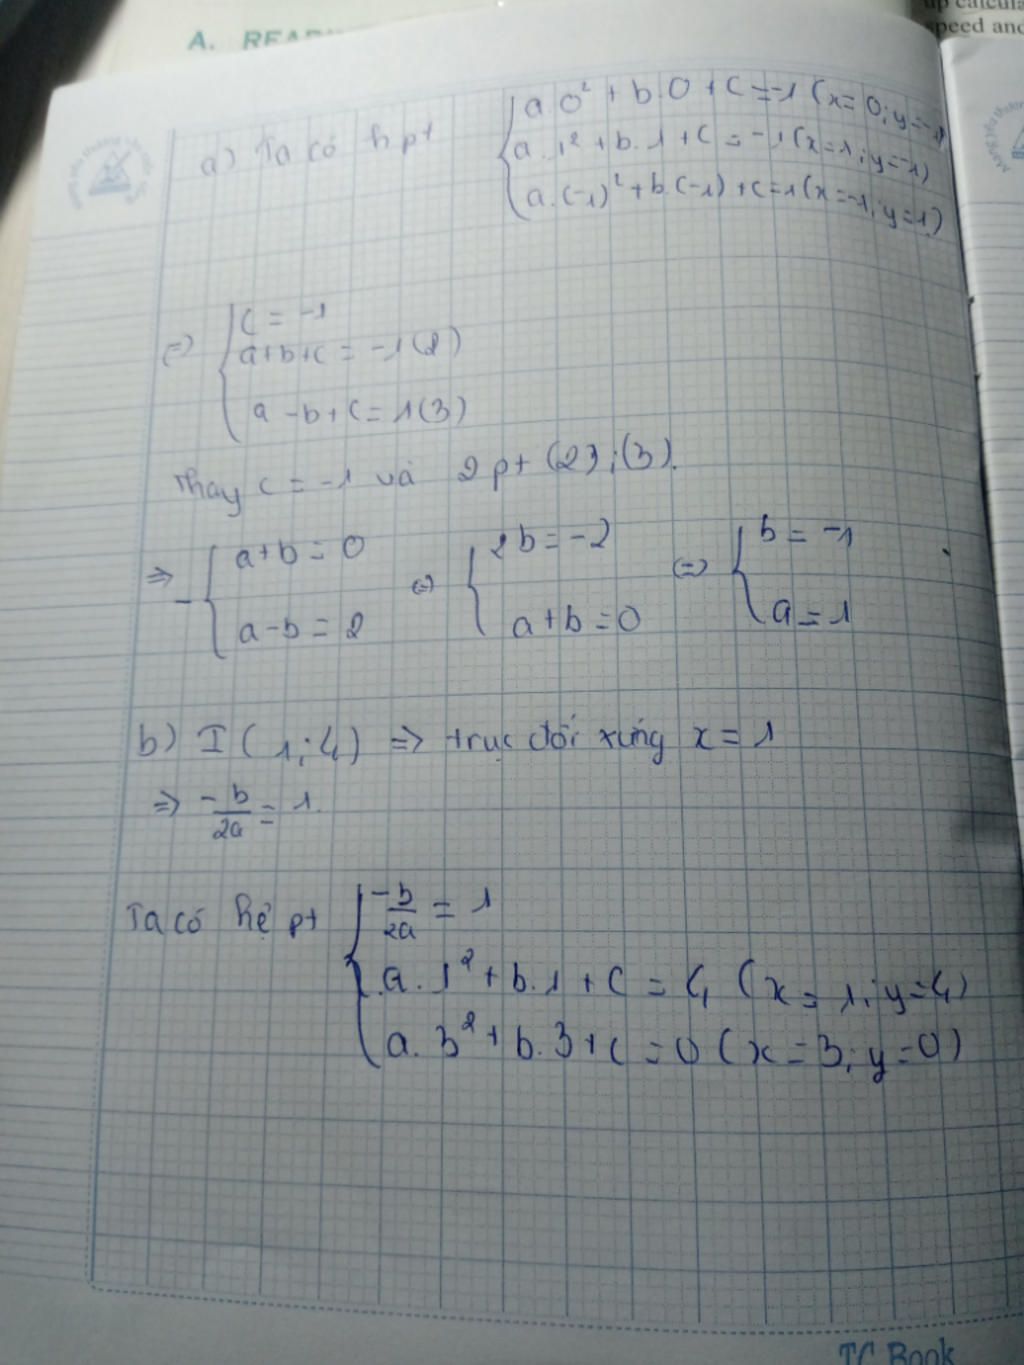 up calcula
speed and
A. READI
a) Ta có hpt { a.0² + b.0 + c = -1 (x = 0; y = -1)
a.1² + b.1 + c = -1 (x = 1; y = -1)
a.(-1)² + b.(-1) + c = 1 (x = -1; y = 1)
(=) { c = -1
a+b+c = -1 (2)
a - b + c = 1 (3)
Thay c = -1 và 2 pt (2); (3).
=> { a+b = 0 (=) { 2b = -2 (=) { b = -1
a - b = 2 a+b = 0 a = 1
b) I (1; 4) => trục đối xứng x = 1
=> -b/2a = 1.
Ta có hệ pt { -b/2a = 1
a.1² + b.1 + c = 4 (x = 1; y = 4)
a.3² + b.3 + c = 0 (x = 3; y = 0)
TC Book